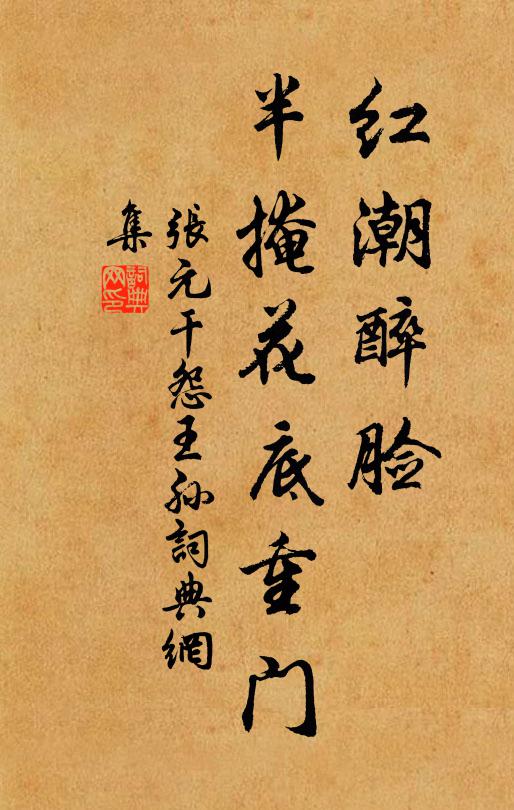 红潮醉脸
半掩花底重门
張元干怨王孙詞典網
集
詞典
网印